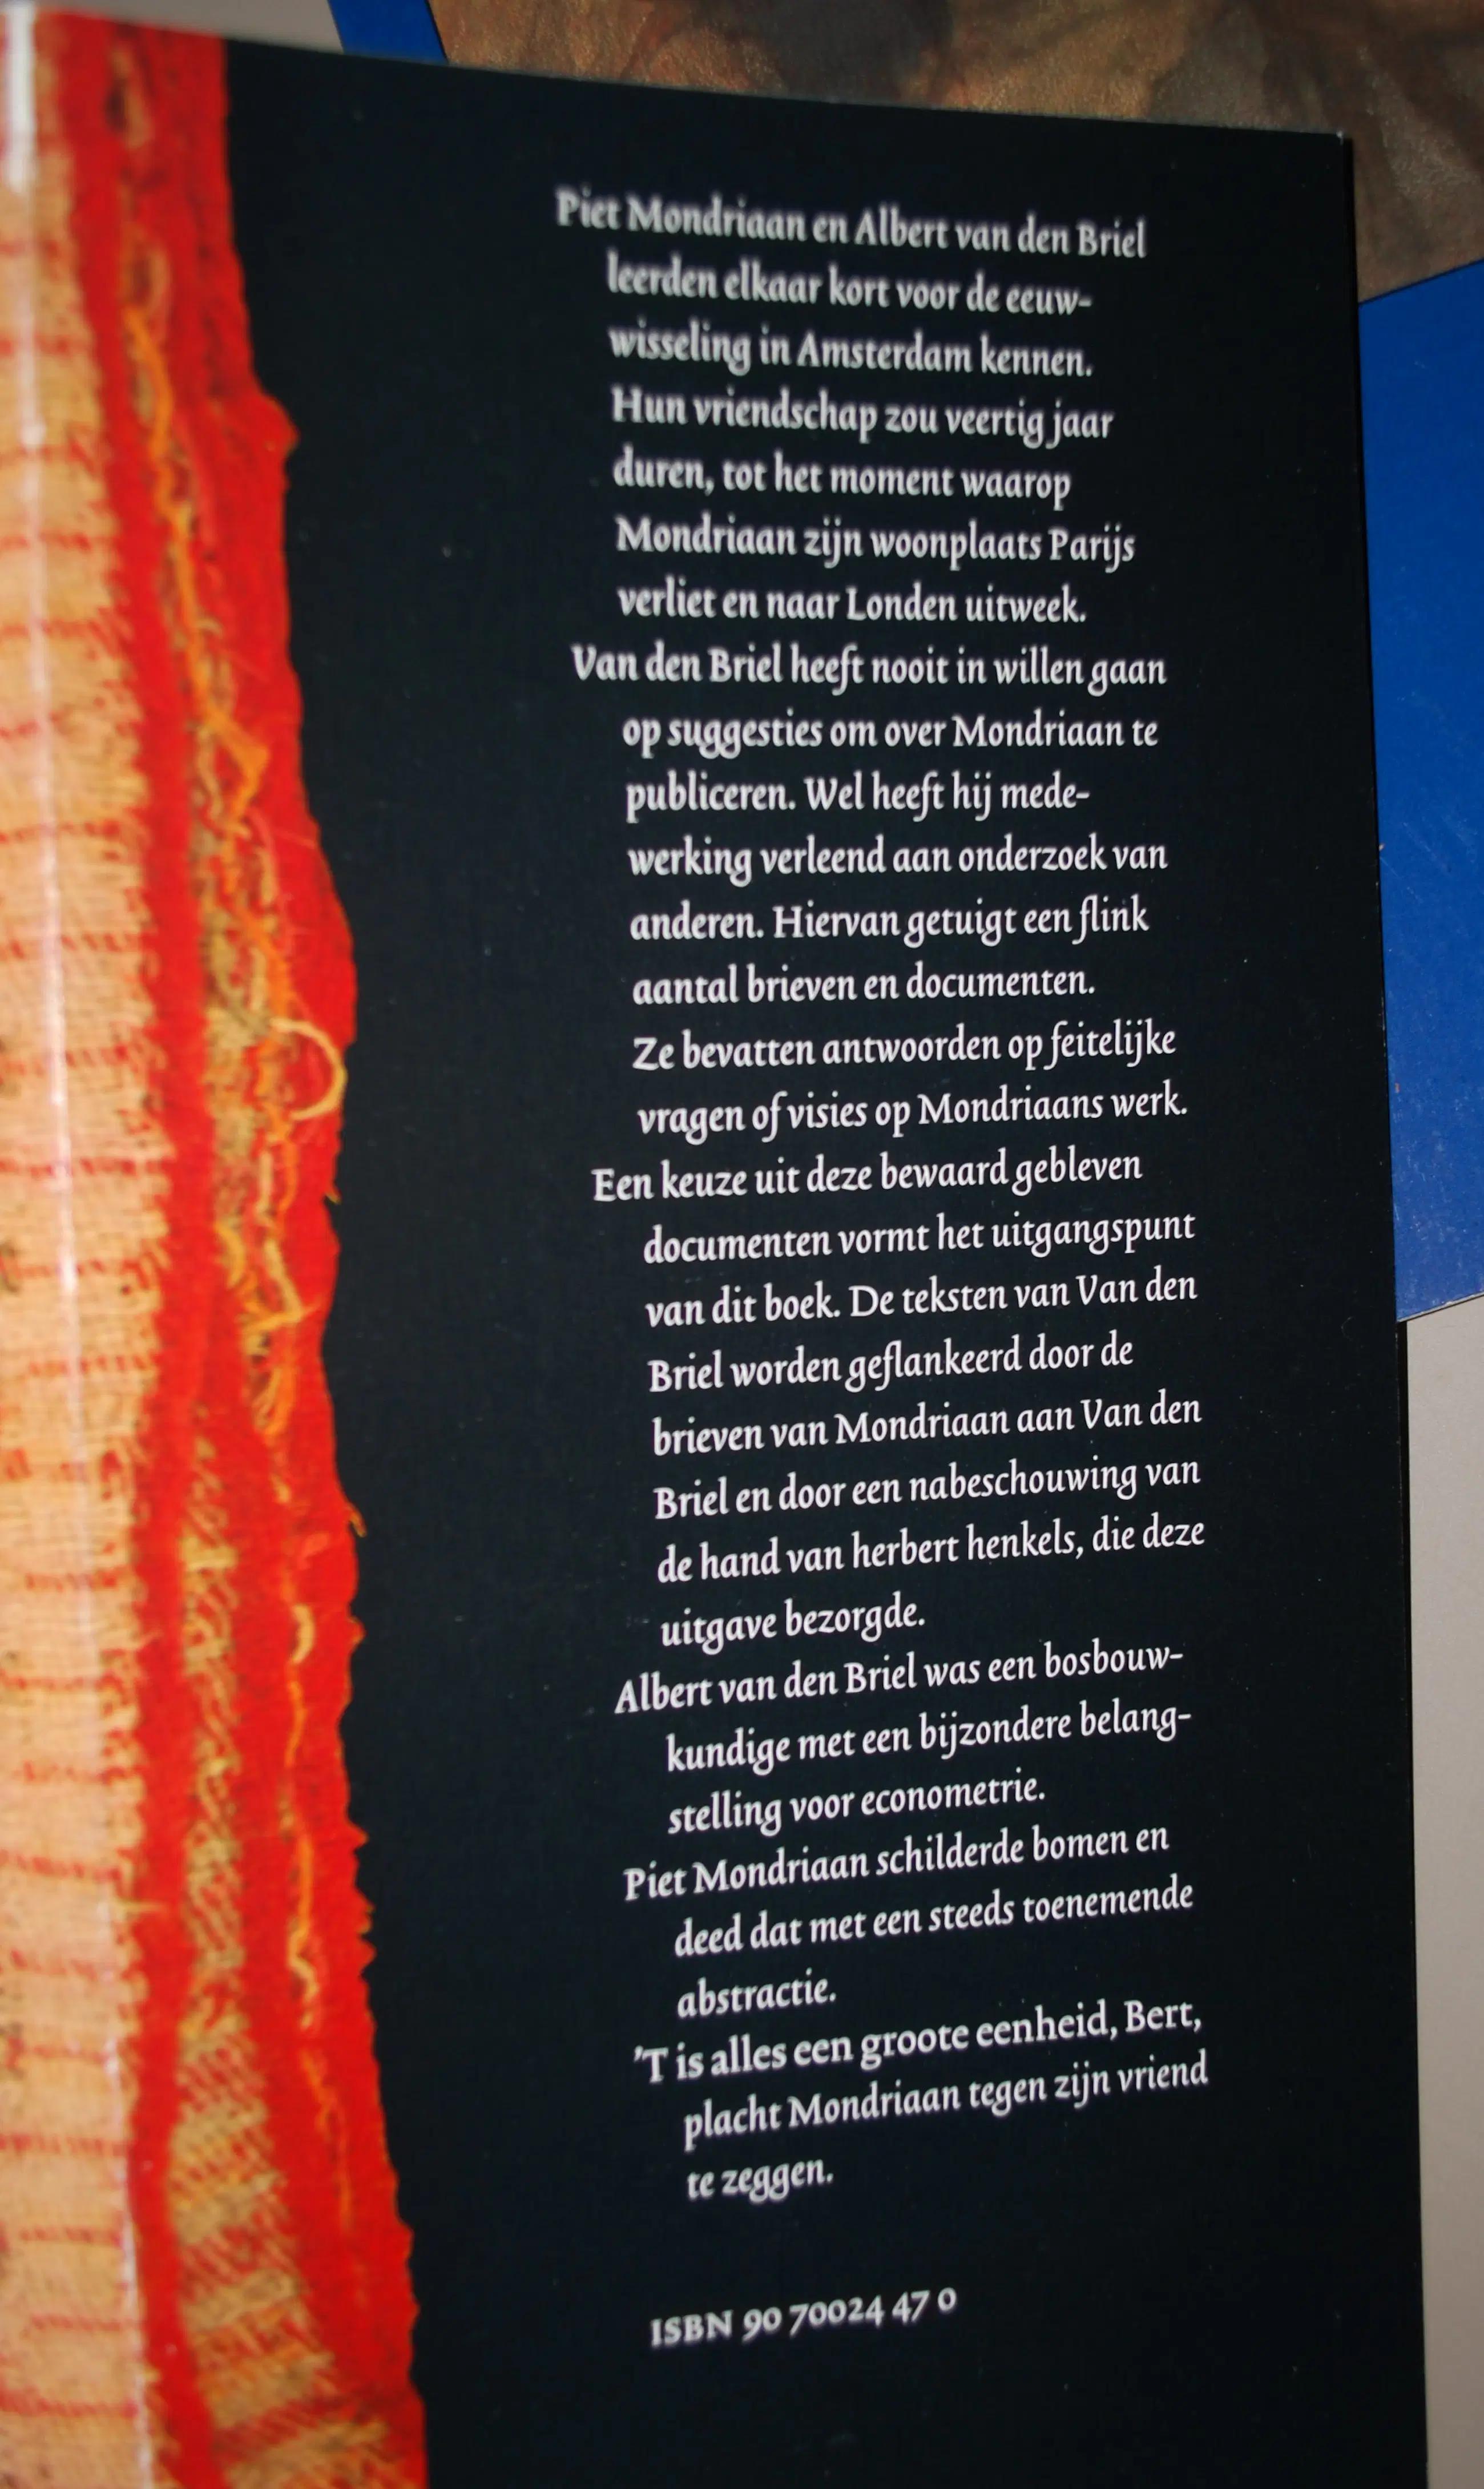 Piet Mondriaan en Albert van den Briel
leerden elkaar kort voor de eeuw-
wisseling in Amsterdam kennen.
Hun vriendschap zou veertig jaar
duren, tot het moment waarop
Mondriaan zijn woonplaats Parijs
verliet en naar Londen uitweek.
Van den Briel heeft nooit in willen gaan
op suggesties om over Mondriaan te
publiceren. Wel heeft hij mede-
werking verleend aan onderzoek van
anderen. Hiervan getuigt een flink
aantal brieven en documenten.
Ze bevatten antwoorden op feitelijke
vragen of visies op Mondriaans werk.
Een keuze uit deze bewaard gebleven
documenten vormt het uitgangspunt
van dit boek. De teksten van Van den
Briel worden geflankeerd door de
brieven van Mondriaan aan Van den
Briel en door een nabeschouwing van
de hand van herbert henkels, die deze
uitgave bezorgde.
Albert van den Briel was een bosbouw-
kundige met een bijzondere belang-
stelling voor econometrie.
Piet Mondriaan schilderde bomen en
deed dat met een steeds toenemende
abstractie.
'T is alles een groote eenheid, Bert,
placht Mondriaan tegen zijn vriend
te zeggen.
ISBN 90 70024 47 0